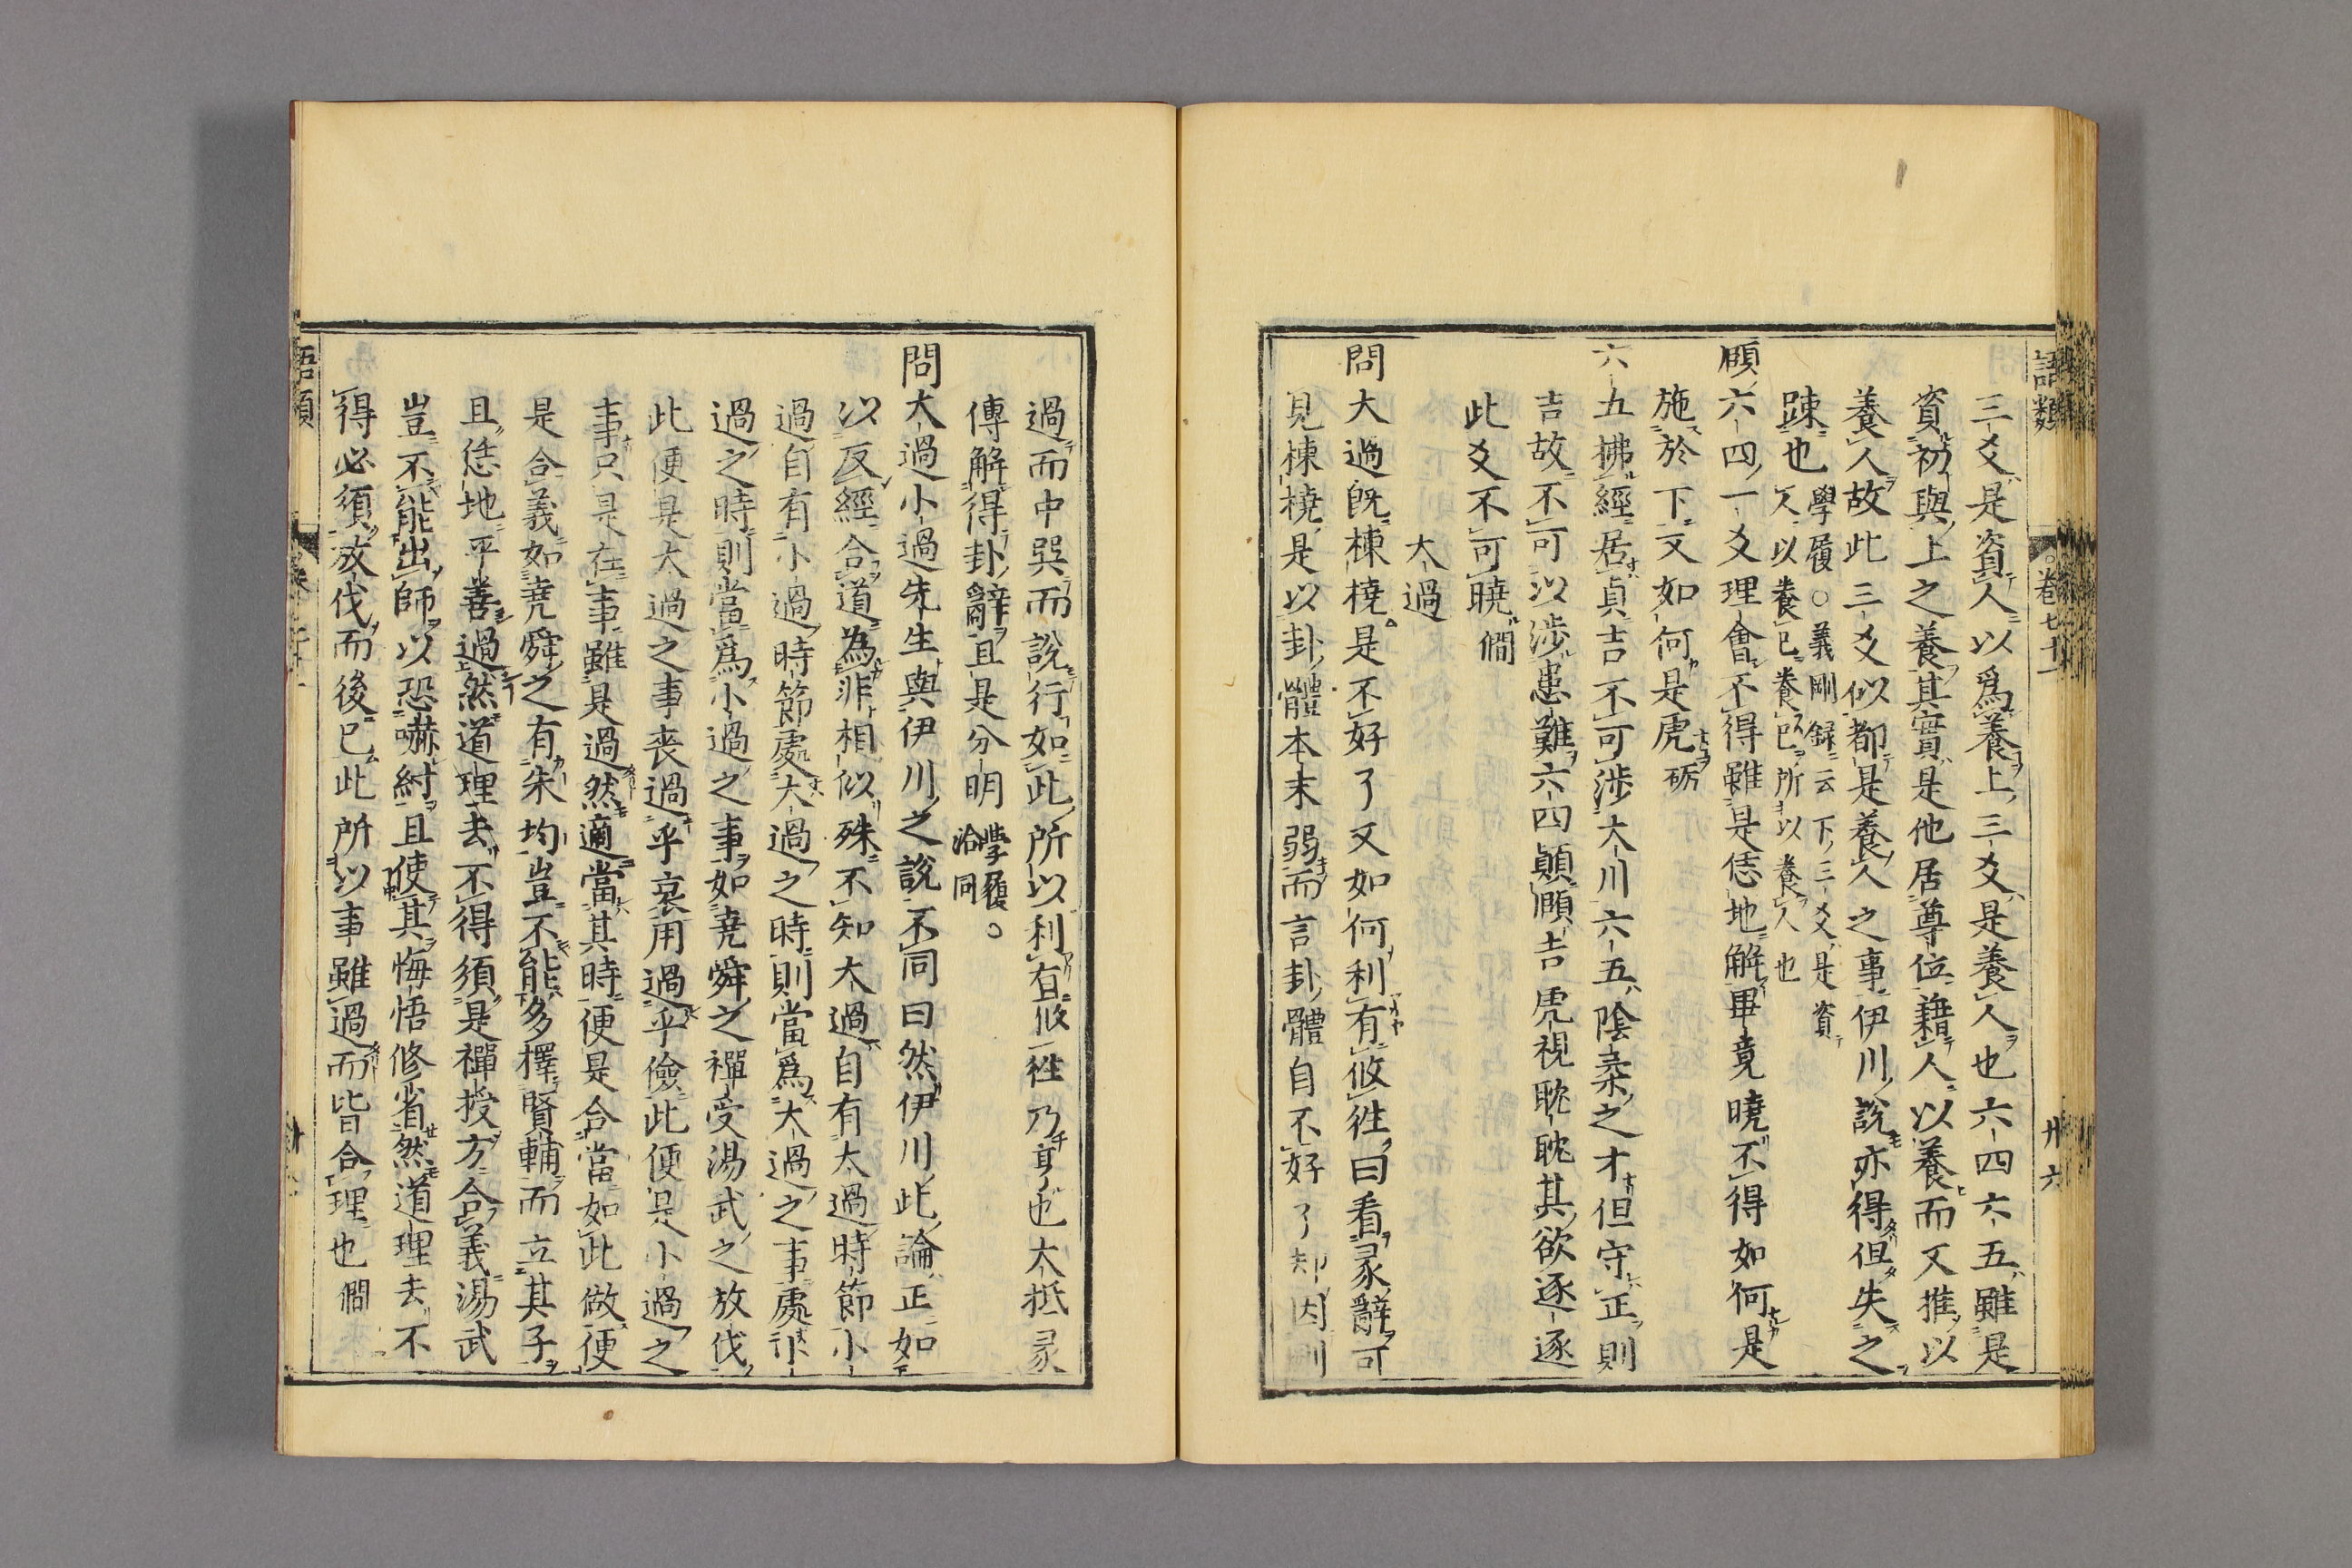 語類
卷七十一
廾六
三爻是資人以爲養上三爻是養人也六四六五雖是
資初與上之養其實是他居尊位藉人以養而又推以
養人故此三爻似都是養人之事伊川說亦得但失之
踈也學履○義剛録云下三爻是資
人以養己養己所以養人也
頤六四一爻理會不得雖是恁地解畢竟曉不得如何是
施於下又如何是虎砺
六五拂經居貞吉不可渉大川六五陰柔之才但守正則
吉故不可以渉患難六四顛頤吉虎視眈眈其欲逐逐
此爻不可曉僩
大過
問大過既棟橈是不好了又如何利有攸徃曰看彖辭可
見棟橈是以卦體本末弱而言卦體自不好了却因剛
過而中巽而說行如此所以利有攸徃乃亨也大抵彖
傳解得卦辭直是分明學履
洽同。
問大過小過先生與伊川之說不同曰然伊川此論正如
以反經合道為非相似殊不知大過自有大過時節小
過自有小過時節處大過之時則當爲大過之事處小
過之時則當爲小過之事如堯舜之禪受湯武之放伐
此便是大過之事喪過乎哀用過乎儉此便是小過之
事只是在事雖是過然適當其時便是合當如此做便
是合義如堯舜之有朱均豈不能多擇賢輔而立其子
且恁地平善過然道理去不得須是禪授方合義湯武
豈不能出師以恐嚇紂且使其悔悟修省然道理去不
得必須放伐而後已此所以事雖過而皆合理也僩
語類